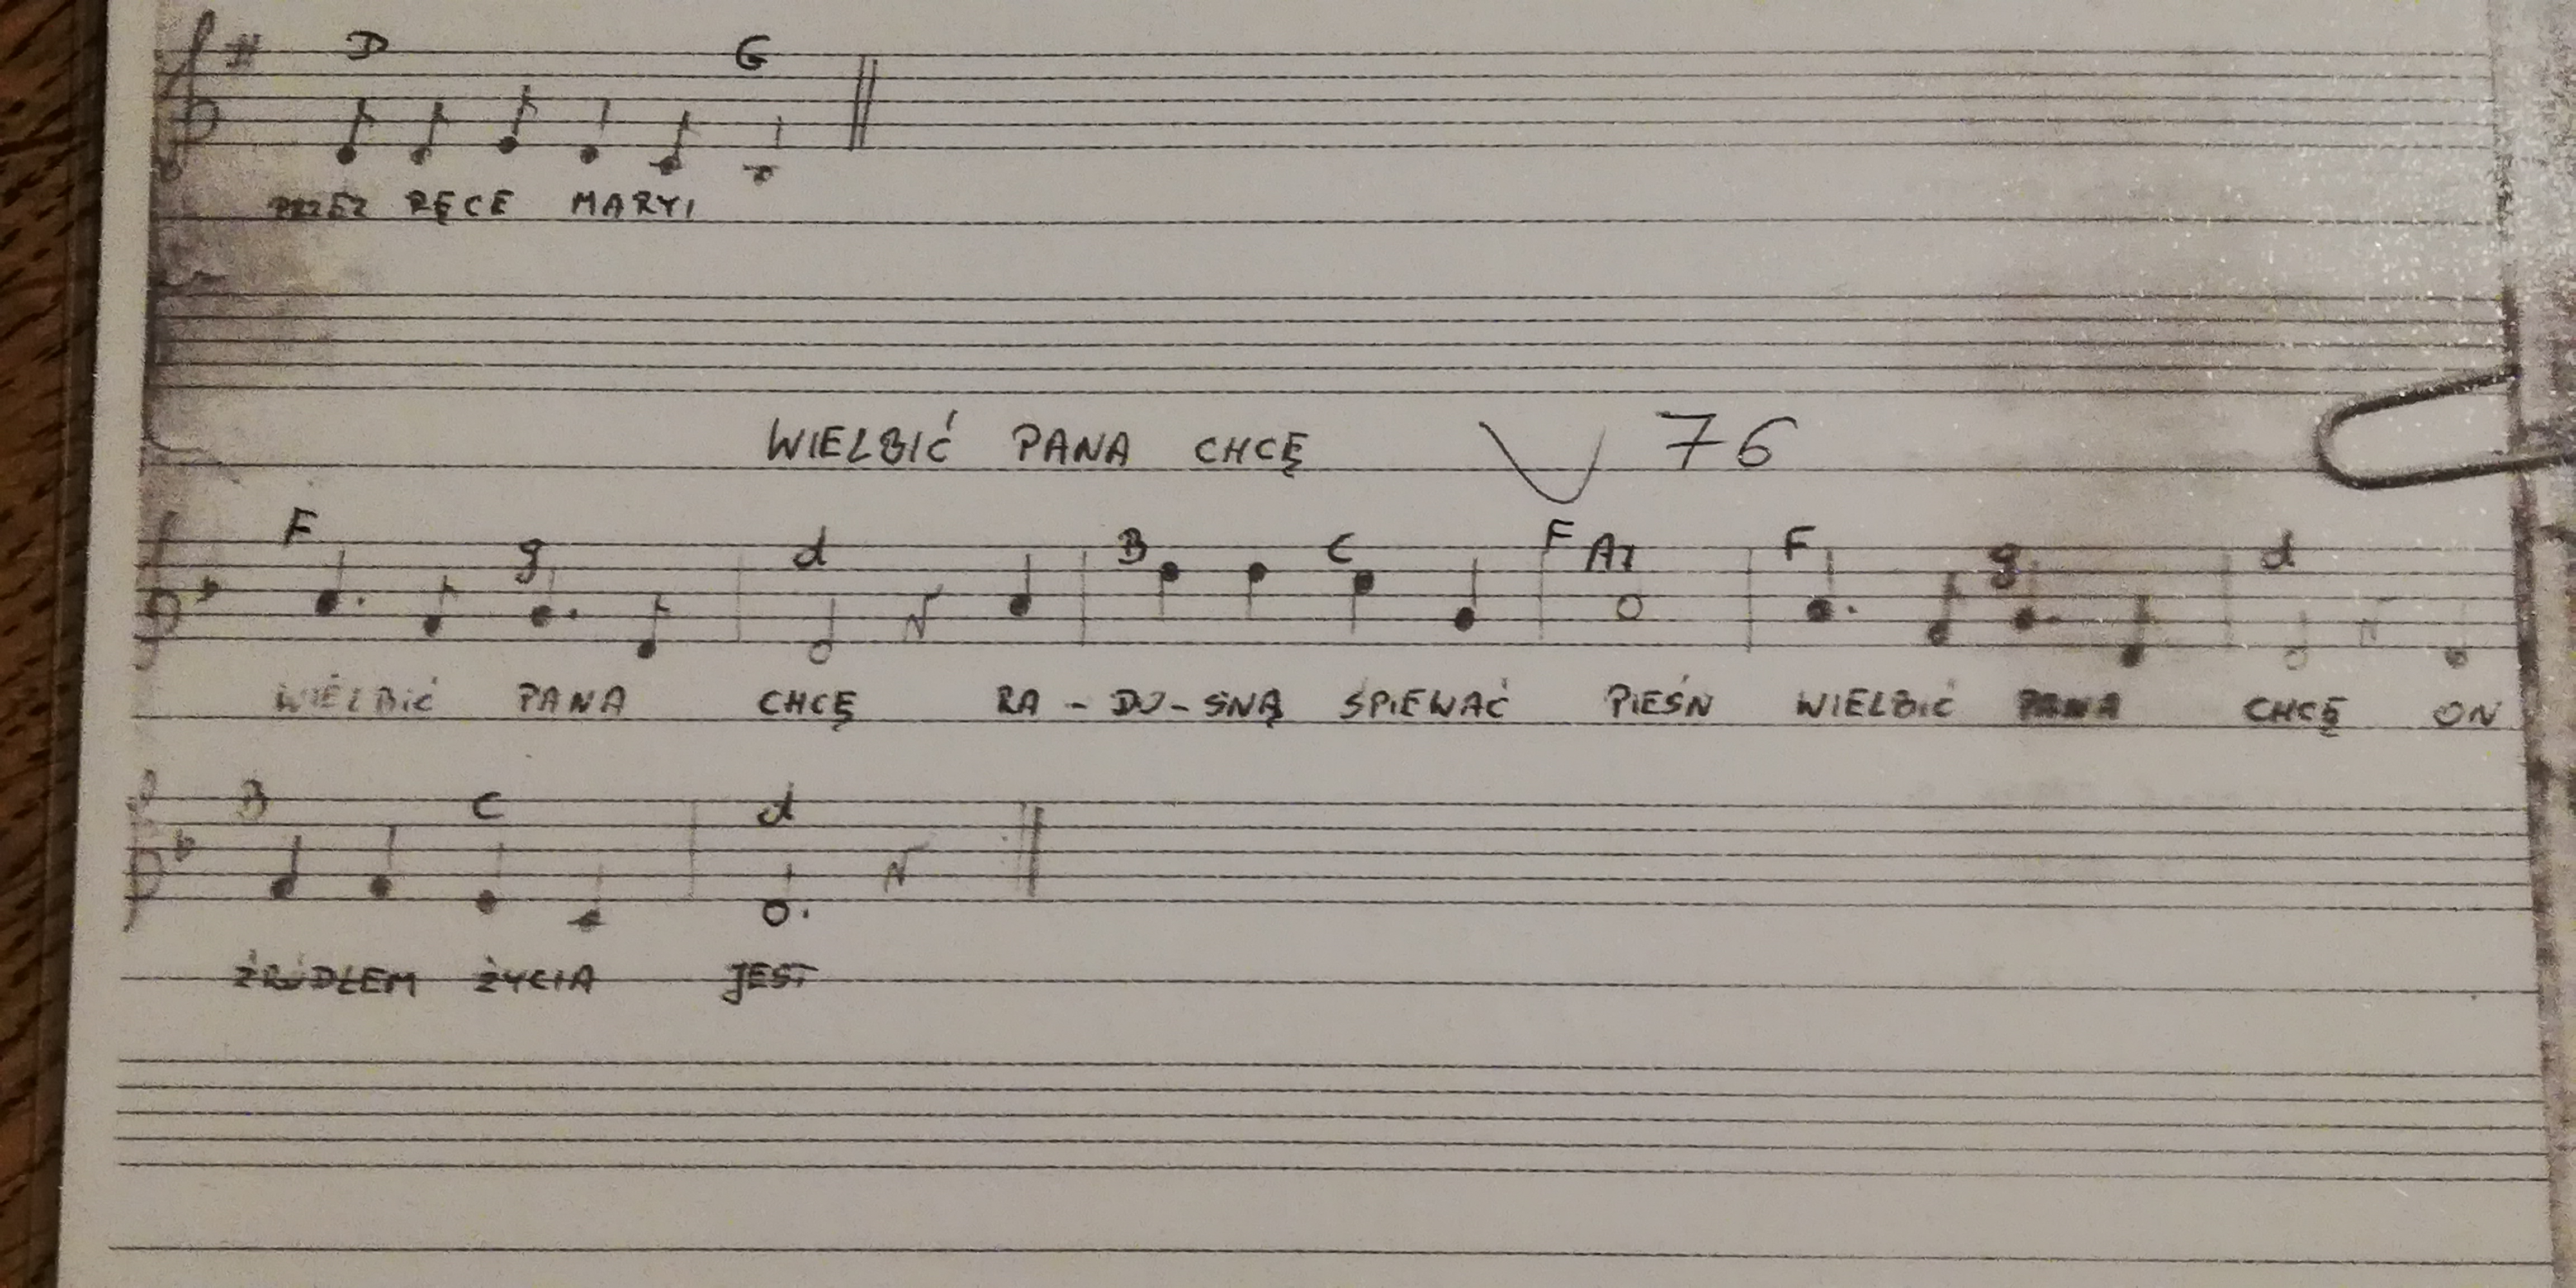 D G
PRZEZ RĘCE MARYI
WIELBIĆ PANA CHCĘ 76
F g d B C F A7 F g d
WIELBIĆ PANA CHCĘ RA - DO - SNĄ ŚPIEWAĆ PIEŚŃ WIELBIĆ PANA CHCĘ ON
B C d
ŹRÓDŁEM ŻYCIA JEST